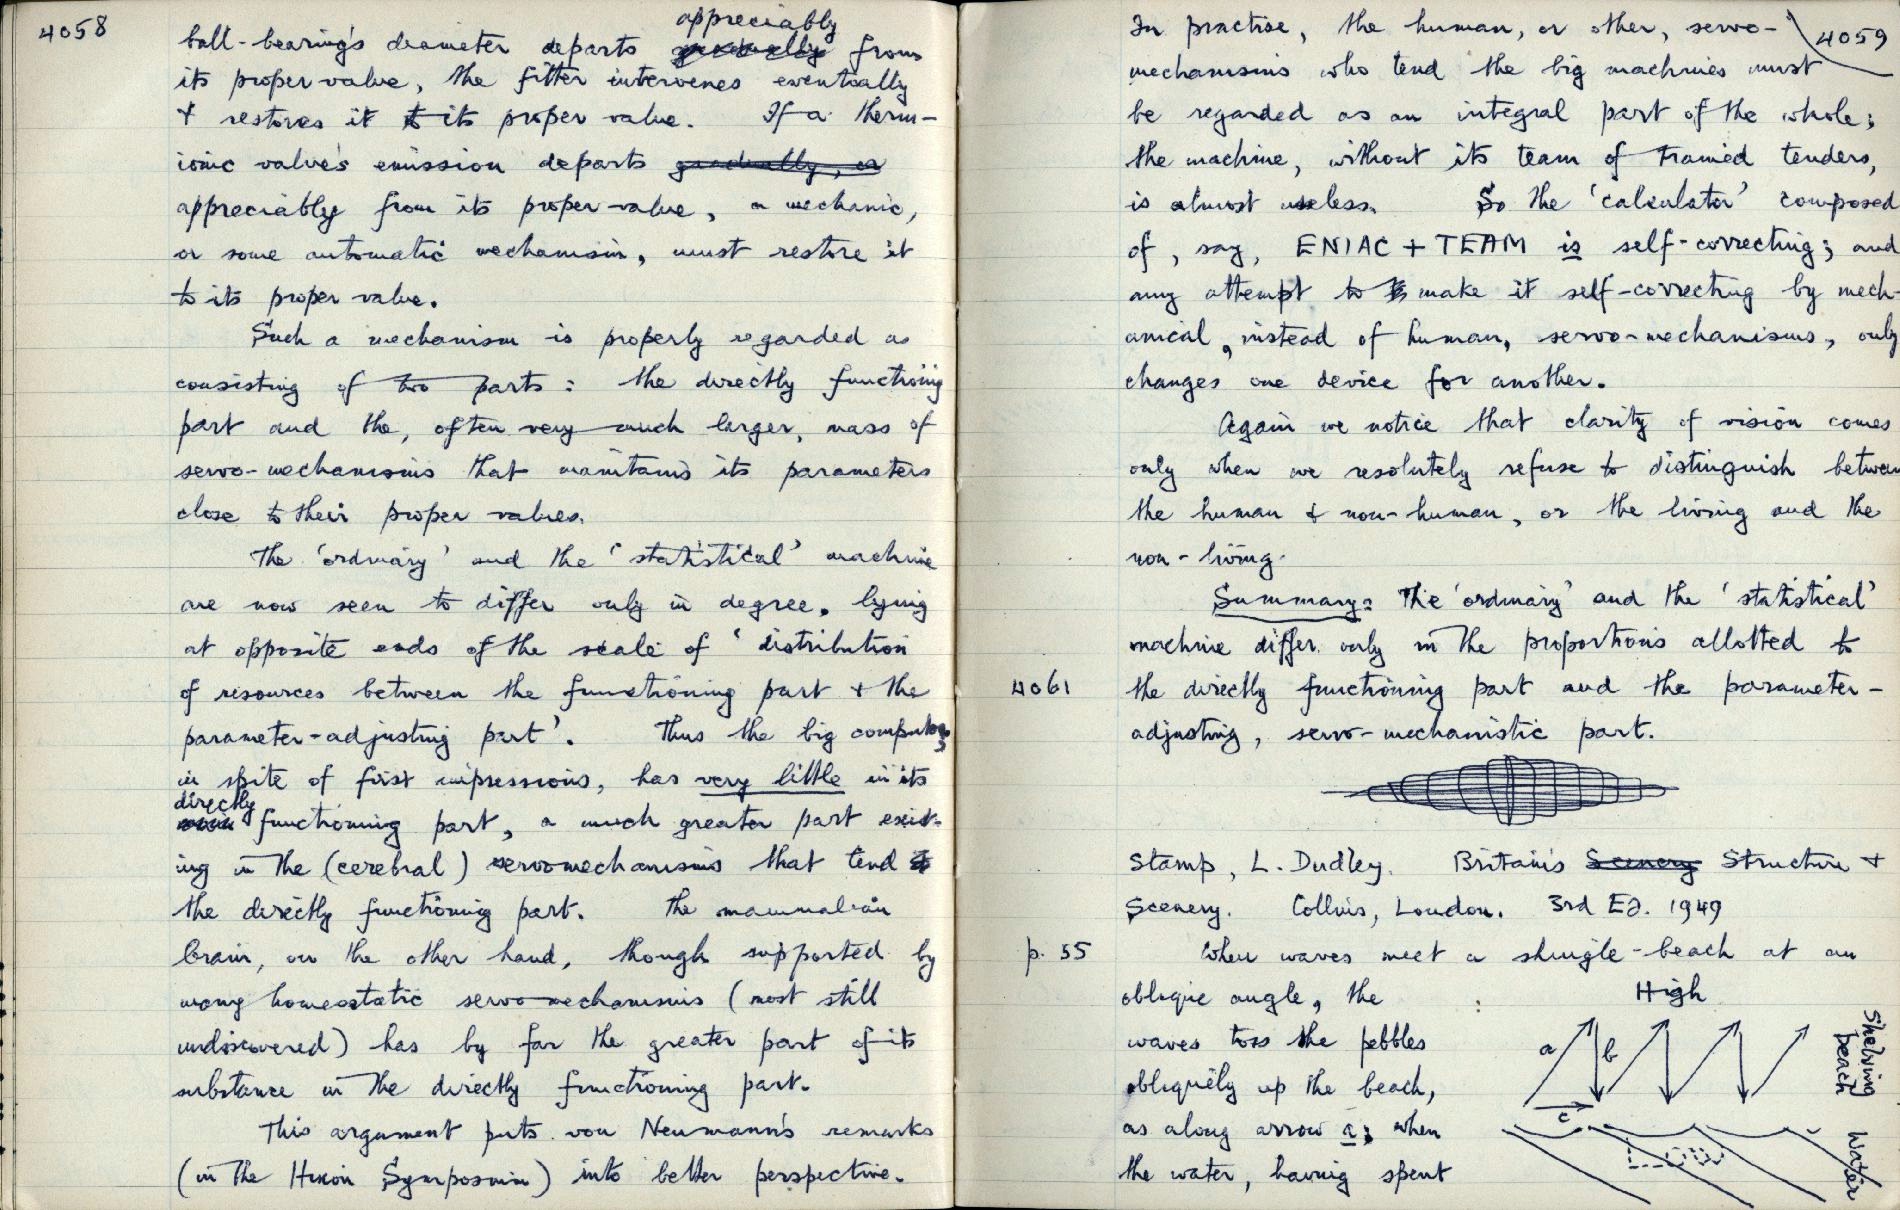 4058
appreciably
ball-bearing's diameter departs gradually from
its proper value, the fitter intervenes eventually
& restores it to its proper value. If a therm-
ionic valve's emission departs gradually, or
appreciably from its proper value, a mechanic,
or some automatic mechanism, must restore it
to its proper value.
Such a mechanism is properly regarded as
consisting of two parts: the directly functioning
part and the, often very much larger, mass of
servo-mechanisms that maintains its parameters
close to their proper values.
The 'ordinary' and the 'statistical' machine
are now seen to differ only in degree, lying
at opposite ends of the scale of 'distribution
of resources between the functioning part & the
parameter-adjusting part'. Thus the big computer,
in spite of first impressions, has very little in its
directly
functioning part, a much greater part exist-
ing in the (cerebral) servomechanisms that tend
the directly functioning part. The mammalian
brain, on the other hand, though supported by
many homeostatic servo-mechanisms (most still
undiscovered) has by far the greater part of its
substance in the directly functioning part.
This argument puts von Neumann's remarks
(in the Hixon Symposium) into better perspective.
4059
In practise, the human, or other, servo-
mechanisms who tend the big machines must
be regarded as an integral part of the whole;
the machine, without its team of trained tenders,
is almost useless. So the 'calculator' composed
of, say, ENIAC + TEAM is self-correcting; and
any attempt to make it self-correcting by mech-
anical, instead of human, servo-mechanisms, only
changes one device for another.
Again we notice that clarity of vision comes
only when we resolutely refuse to distinguish between
the human & non-human, or the living and the
non-living.
Summary: The 'ordinary' and the 'statistical'
machine differ only in the proportions allotted to
4061 the directly functioning part and the parameter-
adjusting, servo-mechanistic part.
Stamp, L. Dudley. Britain's Scenery Structure &
Scenery. Collins, London. 3rd Ed. 1949
p. 55 When waves meet a shingle-beach at an
oblique angle, the
waves toss the pebbles
obliquely up the beach,
as along arrow a; when
the water, having spent
High
a b
c
Shelving beach
Water